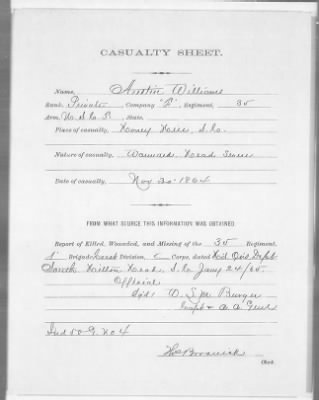 CASUALTY SHEET.
Name, Austin Williams
Rank, Private Company "E", Regiment, 35
Arm, U. S. C. T. State,
Place of casualty, Honey Hill, S. Ca.
Nature of casualty, Wounded, Head Severe
Date of casualty, Nov 30 1864
FROM WHAT SOURCE THIS INFORMATION WAS OBTAINED.
Report of Killed, Wounded, and Missing of the 35 Regiment,
1" Brigade, Coast Division, Corps, dated
South Hilton Head, S. Ca Jany 24/65
Official
Sgd: W. L. M. Burger
Capt & A. A. Genl
No 4
Clerk.